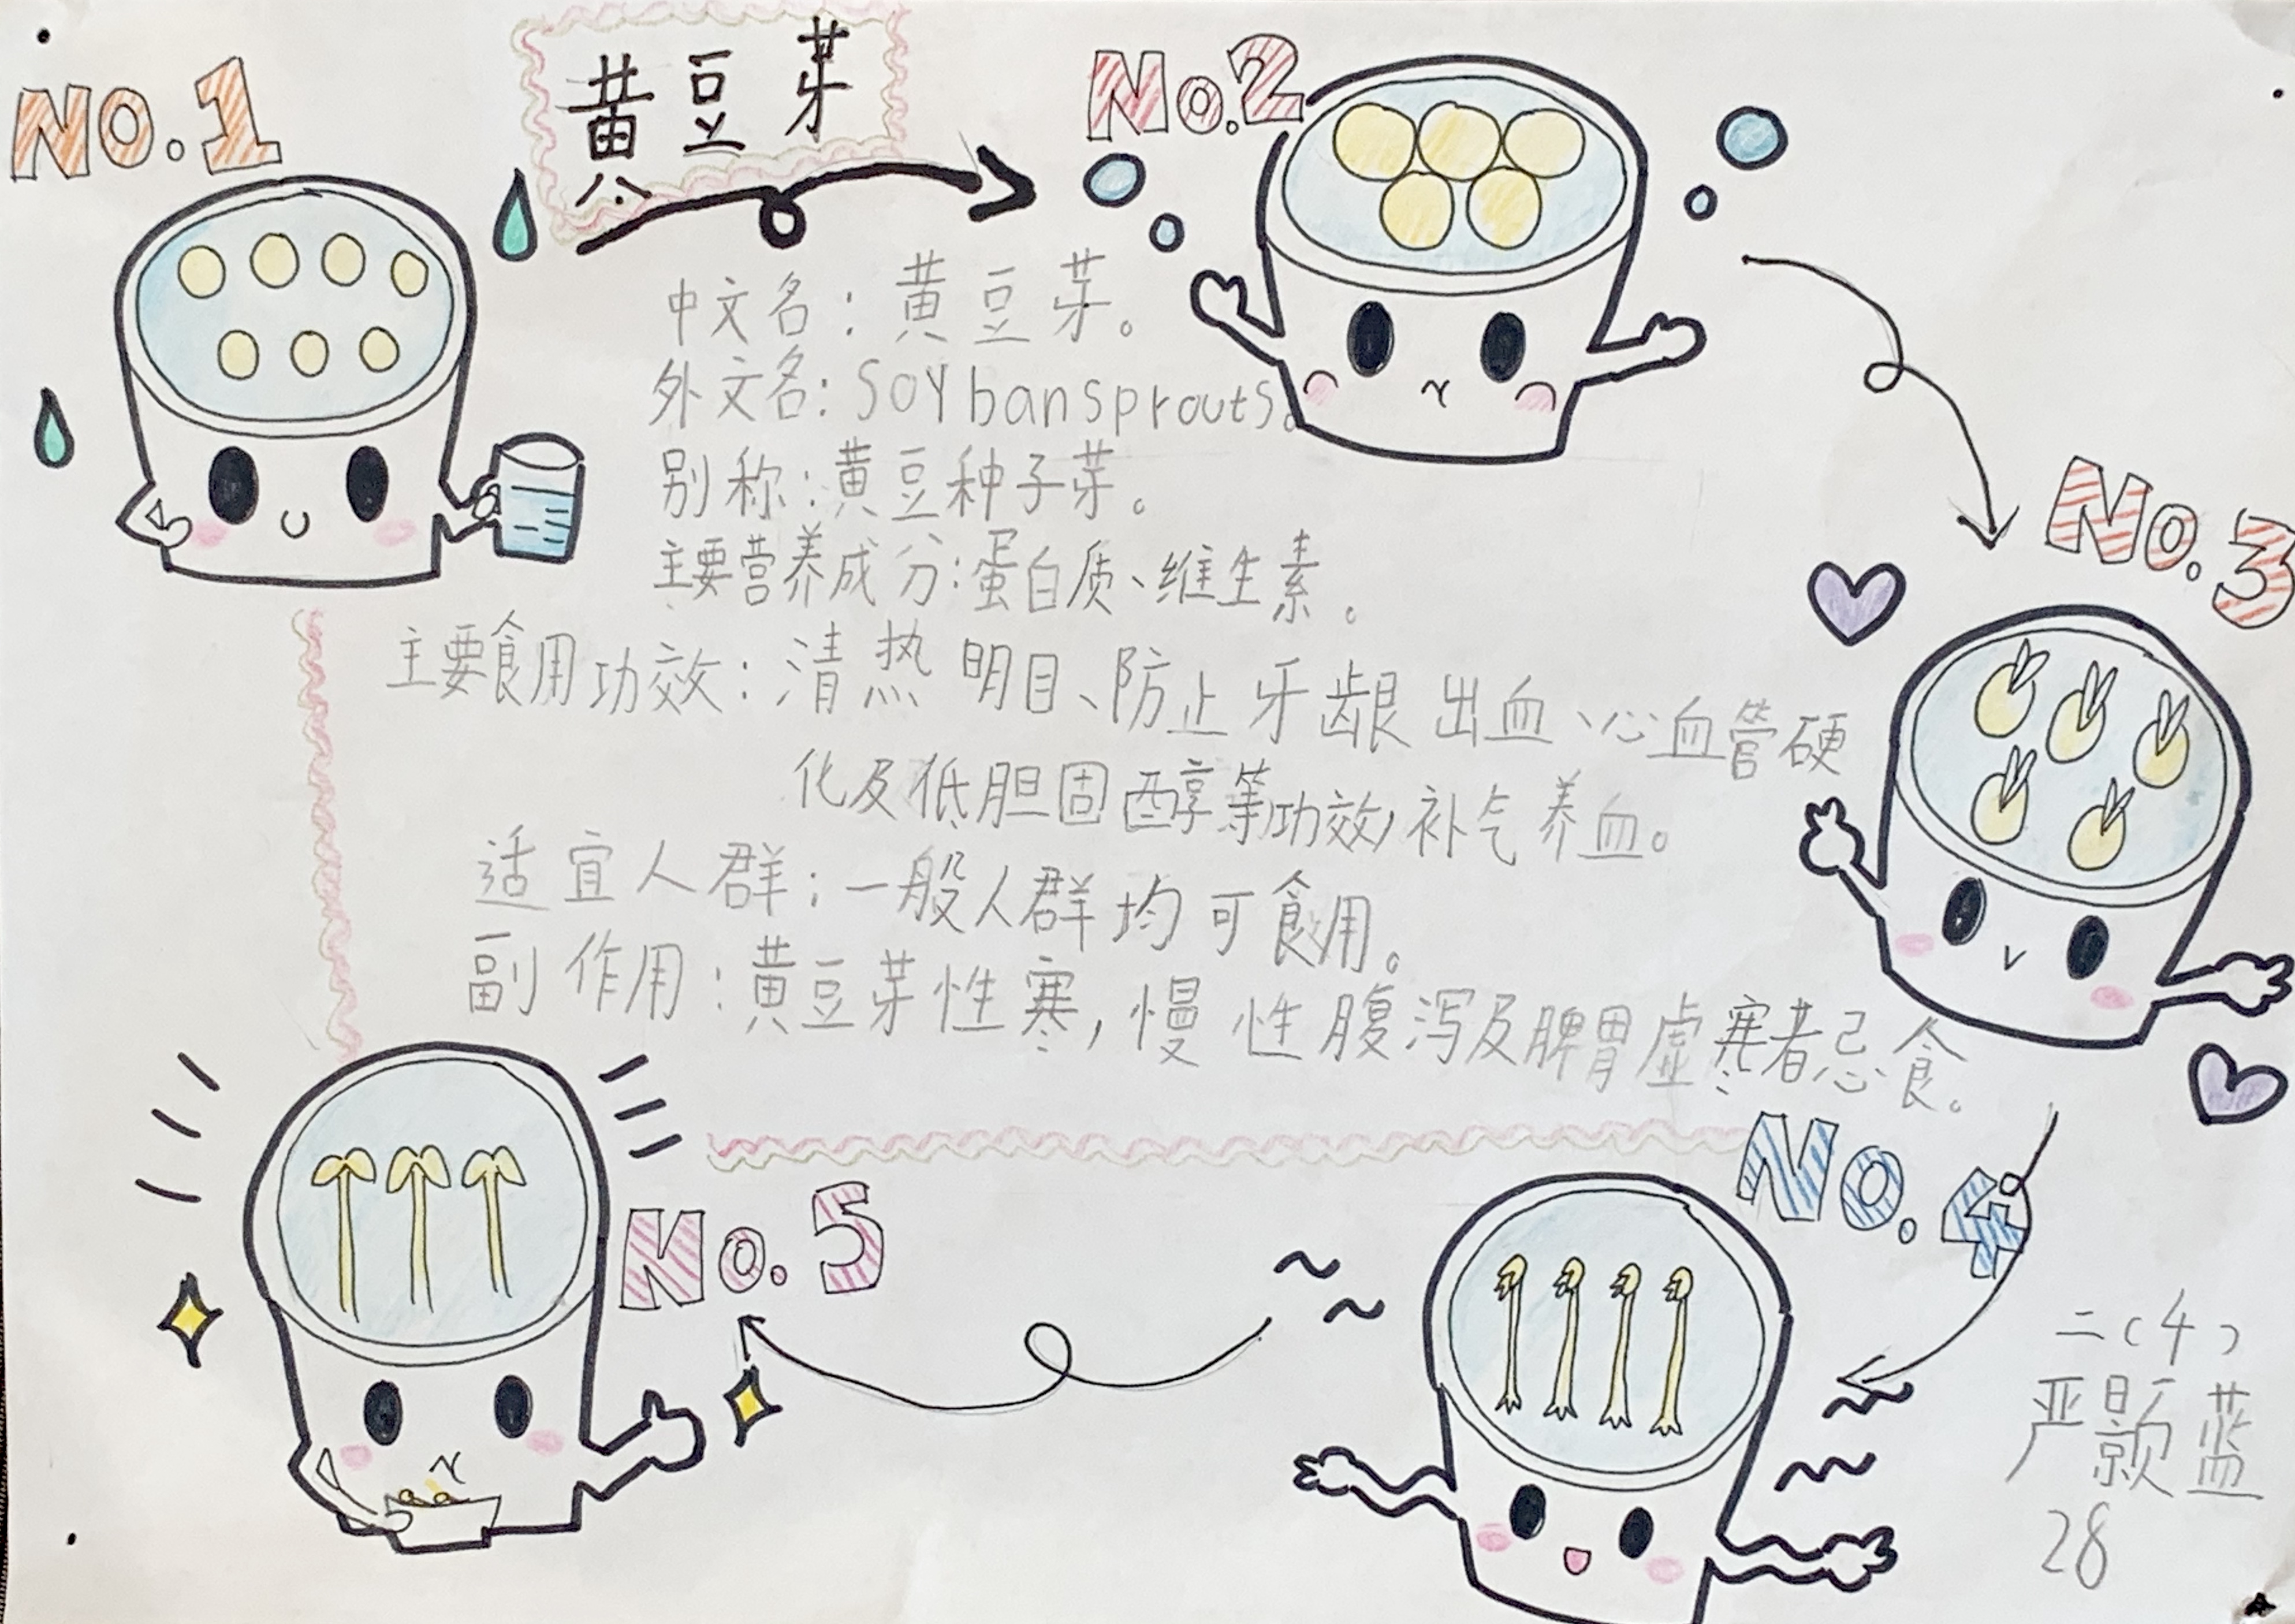 No.1
黄豆芽
No.2
中文名：黄豆芽。
外文名：SOYbansprouts。
别称：黄豆种子芽。
主要营养成分：蛋白质、维生素。
No.3
主要食用功效：清热明目、防止牙龈出血、心血管硬
化及低胆固醇等功效，补气养血。
适宜人群：一般人群均可食用。
副作用：黄豆芽性寒，慢性腹泻及脾胃虚寒者忌食。
No.4
No.5
二（4）
严颢蓝
28